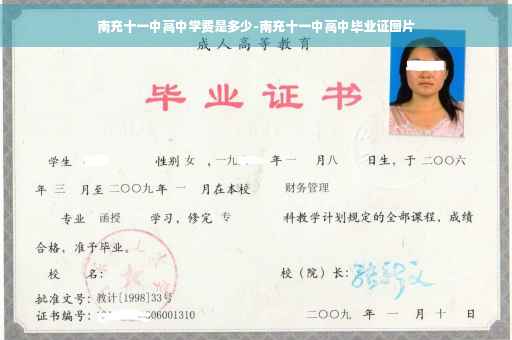 南充十一中高中学费是多少-南充十一中高中毕业证图片
成人高等教育
毕业证书
学生 性别 女 ，一九 年 一 月八 日生，于二〇〇六
年 三 月至二〇〇九年 一 月在本校 财务管理
专业 函授 学习，修完 专 科教学计划规定的全部课程，成绩
合格，准予毕业。
校 名： 校（院）长：
批准文号：教计[1998]33号
证书编号： 06001310 二〇〇九 年 一 月 十 日